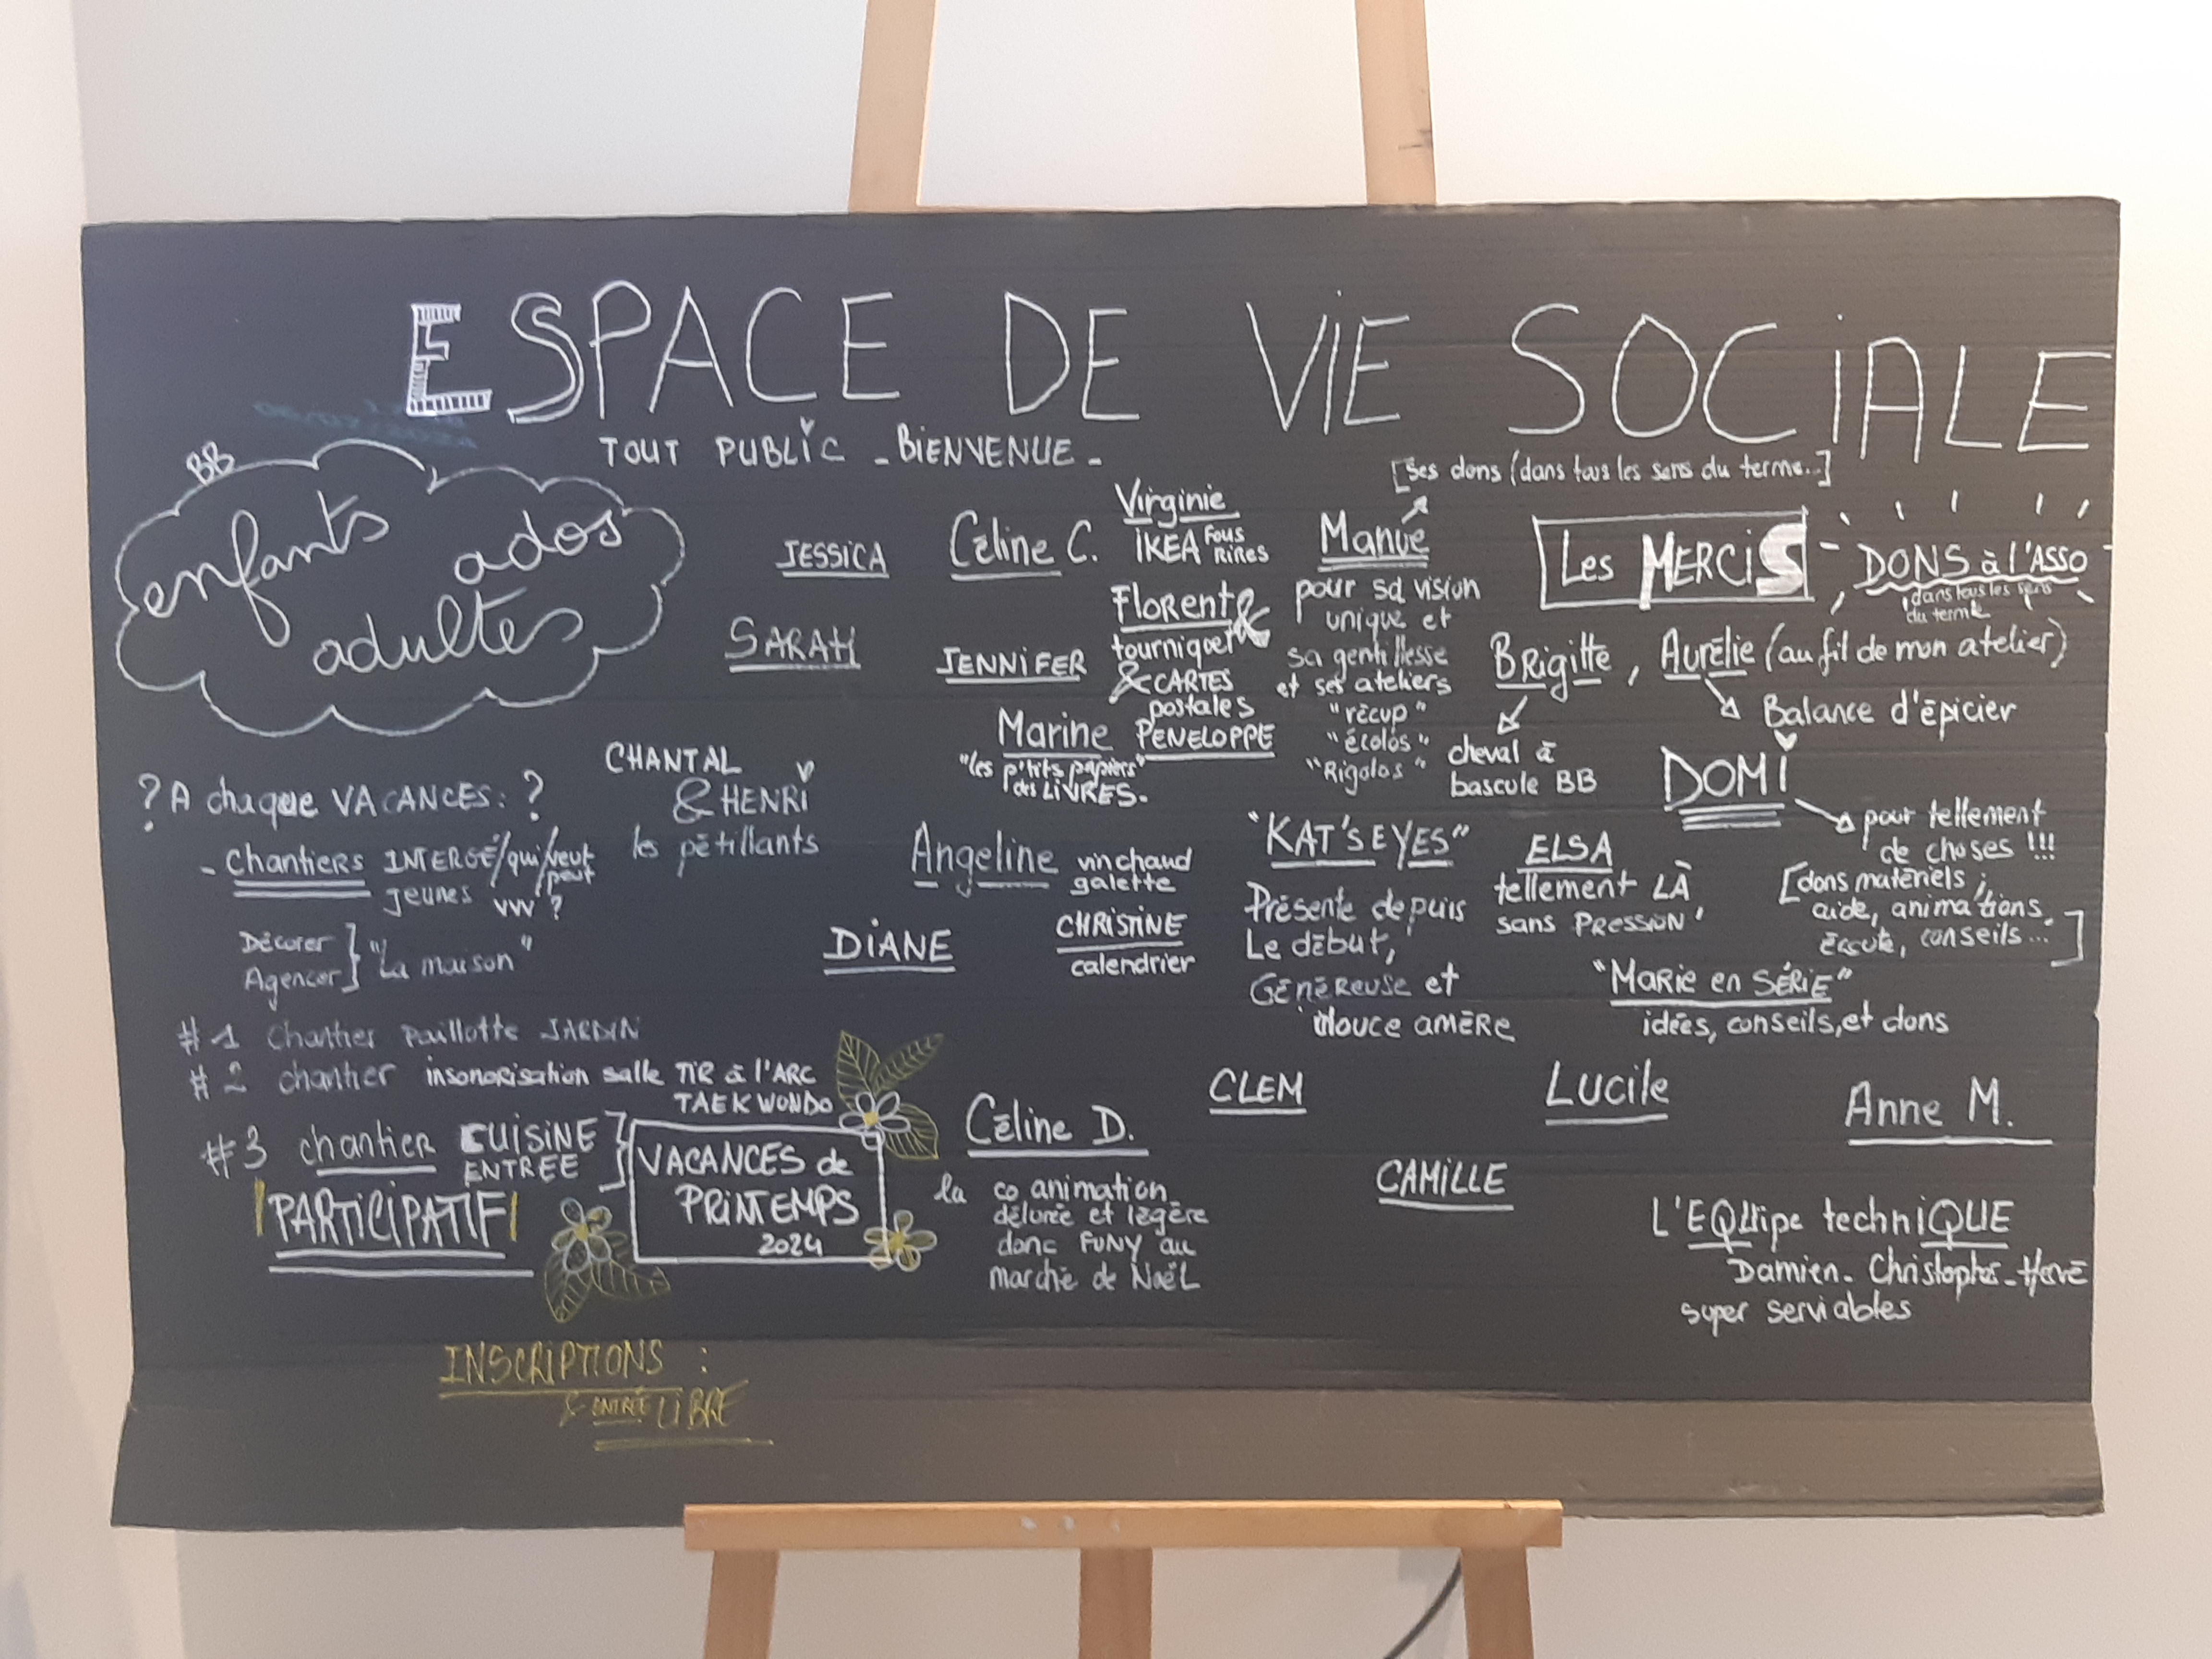 ESPACE DE ViE SOCiALE
TOUT PUBLiC - BiENVENUE -
BB
enfants ados
adultes
? A chaque VACANCES : ?
- Chantiers INTERGÉ/qui/veut
/peut
jeunes VVV ?
Décorer
Agencer } "La maison"
#1 Chantier Paillotte JARDIN
#2 chantier insonorisation salle TiR à l'ARC
TAEKWONDO
#3 chantier CUiSiNE
ENTREE
PARTiCiPATiF
VACANCES de
PRiNTEMPS
2024
INSCRIPTIONS :
& ENTRÉE LiBRE
CHANTAL
& HENRi
les pétillants
JESSiCA
SARAH
Céline C.
JENNiFER
Virginie
iKEA Fous
RiRES
Florent &
tourniquet
& CARTES
postales
Marine
"les p'tits papiers"
des LiVRES.
PENELOPPE
Angeline vin chaud
galette
DiANE
CHRiSTiNE
calendrier
Céline D.
la co animation
délurée et légère
donc FUNY au
marché de Noël
[ses dons (dans tous les sens du terme..]
Manue
pour sa vision
unique et
sa gentillesse
et ses ateliers
"récup"
"écolos"
"Rigolos"
Les MERCiS
DONS à l'ASSO
dans tous les sens
du terme
Brigitte, Aurélie (au fil de mon atelier)
Balance d'épicier
cheval à
bascule BB
DOMi
pour tellement
de choses !!!
[dons matériels ;
aide, animations,
écoute, conseils...]
"KAT'S EYES"
Présente depuis
Le début,
Généreuse et
douce amère
ELSA
tellement LÀ
sans PRESSiON'
"Marie en SÉRiE"
idées, conseils, et dons
CLEM
Lucile
Anne M.
CAMiLLE
L'EQUipe techniQUE
Damien - Christophe - Hervé
super serviables